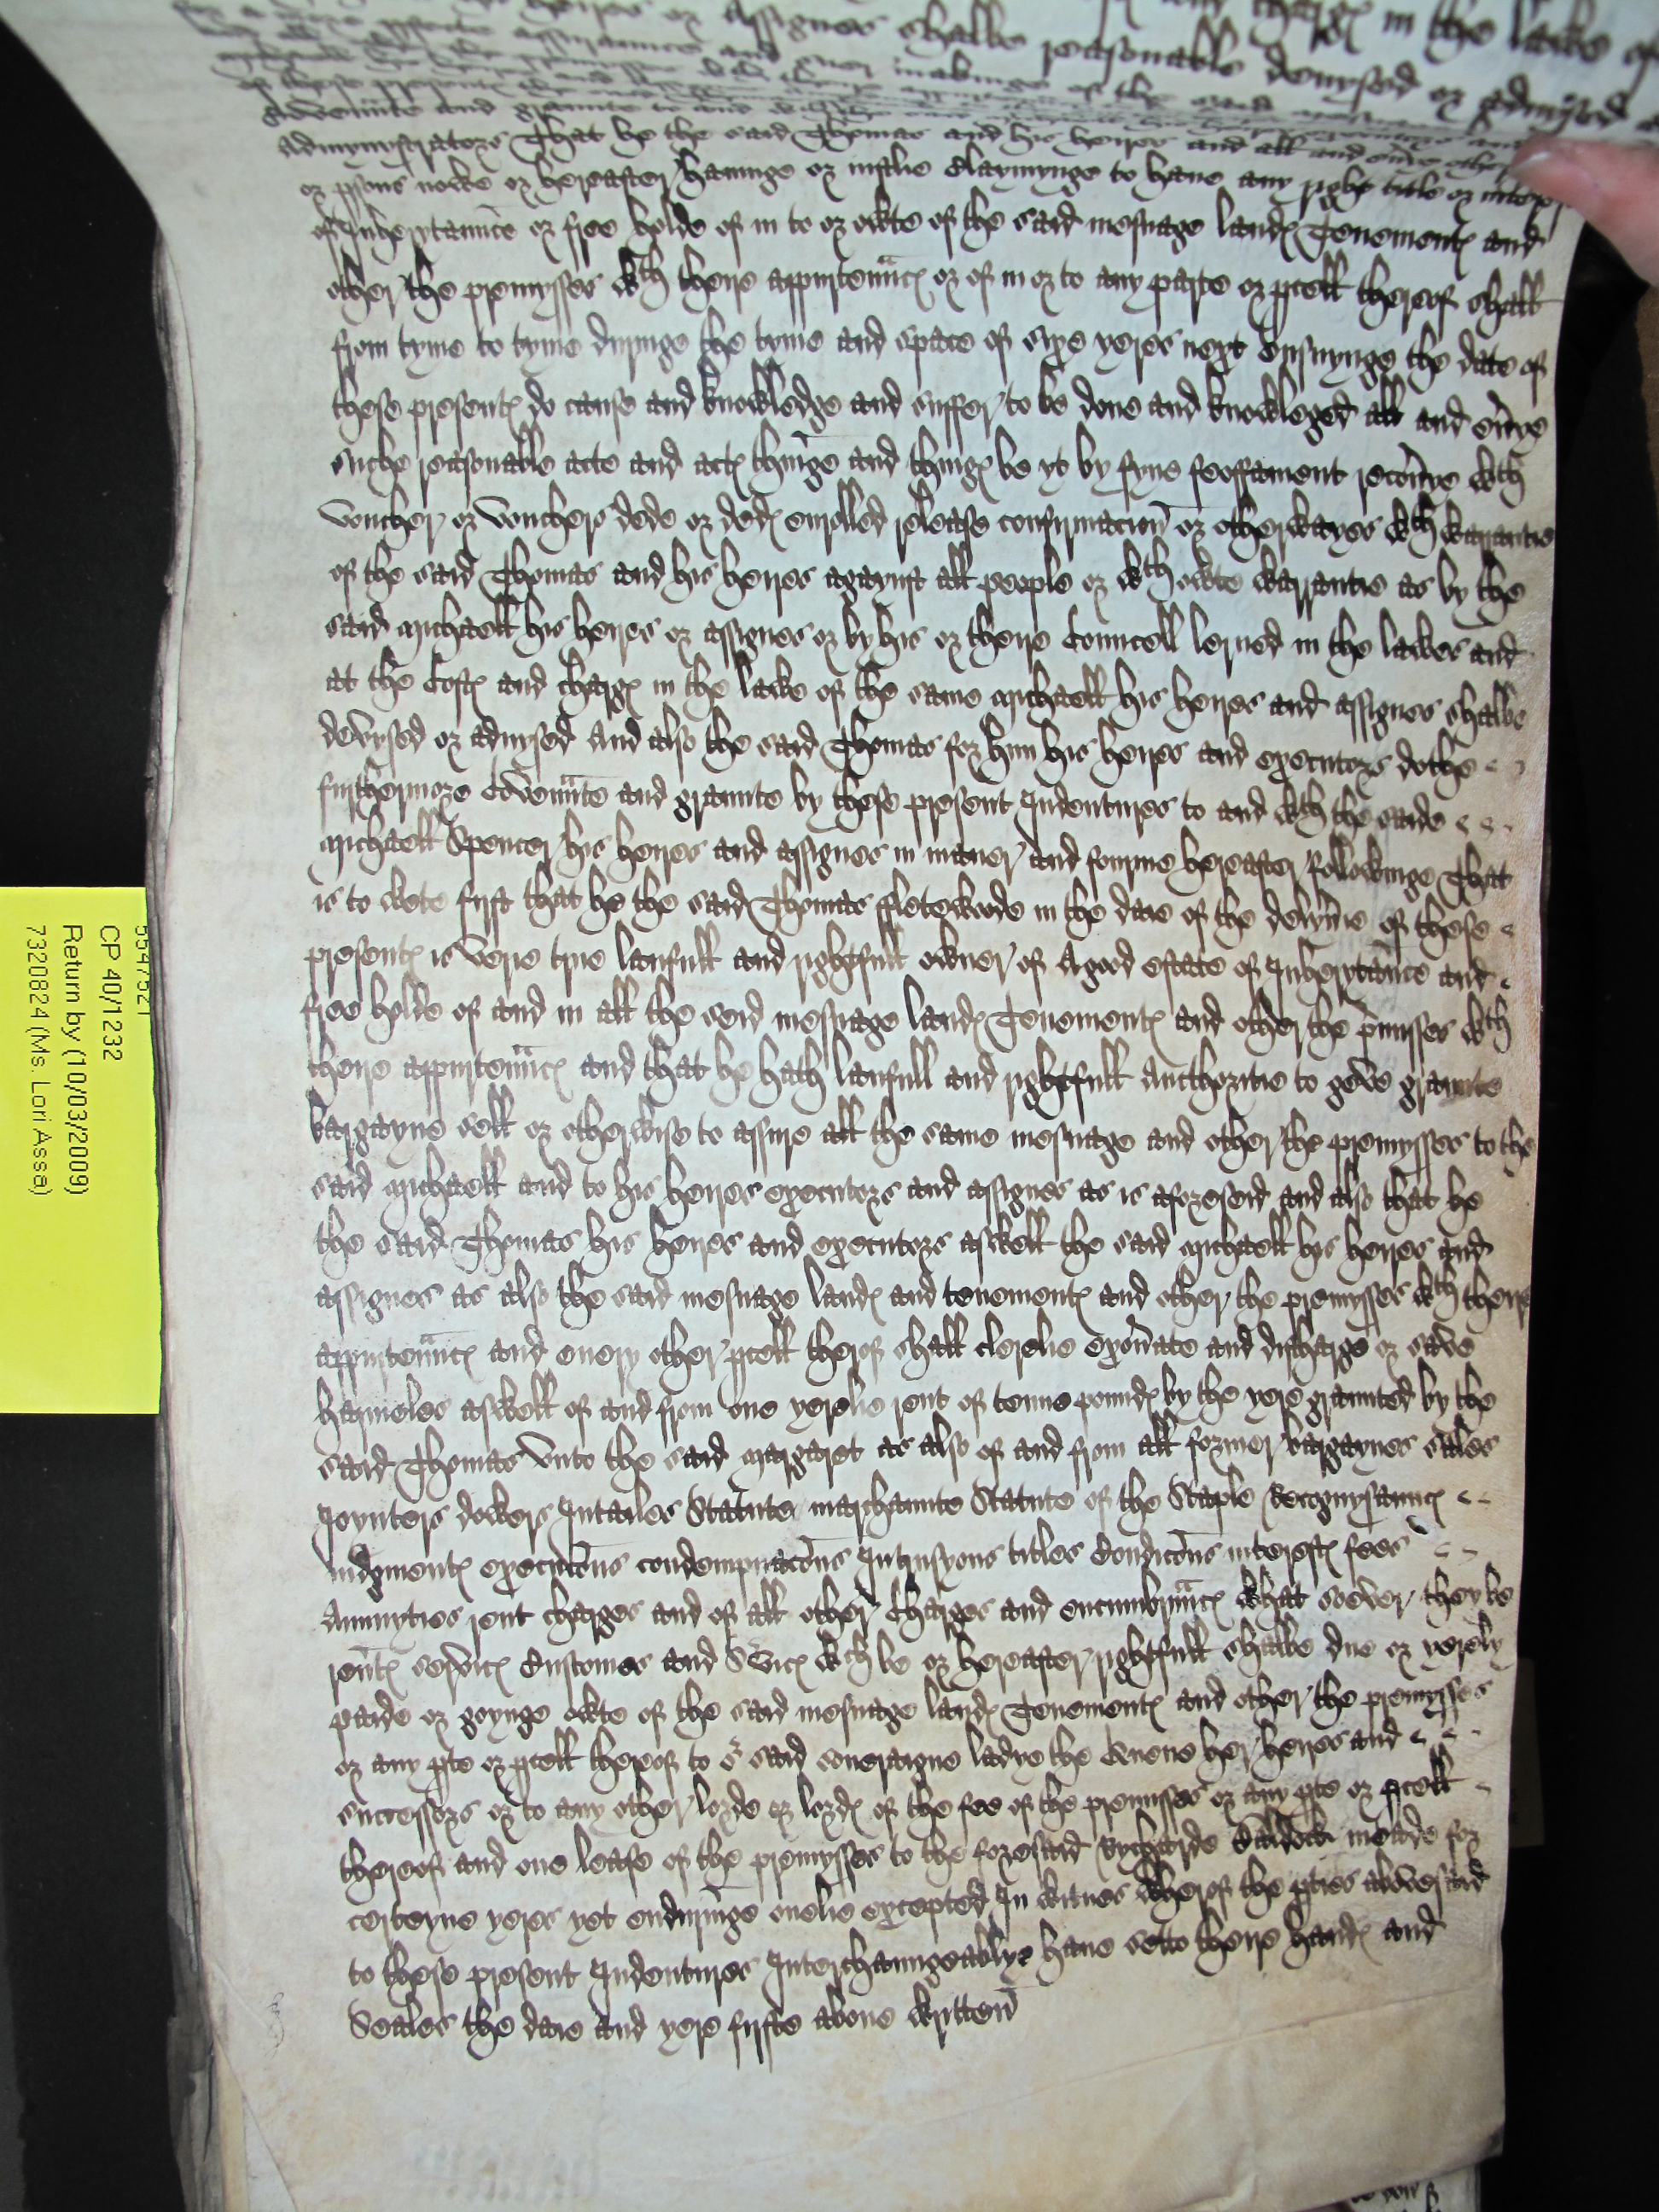 heires or Assignes shalbe reasonable devysed or advysed
Admynystrators That he the said Thomas and his heires and all and evrie other
or psons nowe or hereafter havinge or iustlie claymynge to have any right title or interest
of Inherytaunce or free holde of in to or owte of the said mesuage landes Tenementes and
other the premysses wth theire appurtennces or of in or to any parte or pcell thereof shall
from tyme to tyme duringe the tyme and space of sixe yeres next ensuynge the date of
these presentes do cause and knowledge and suffer to be done and knowleged all and evrye
suche reasonable acte and actes thinge and thinges be yt by fyne feoffament recovrye wth
voucher or vouchers dede or dedes enrolled release confirmacion or otherwayes wth warrantie
of the said Thomas and his heires agaynst all people or wth owte warrantie as by the
said Michaell his heires or assignes or by his or theire Councell lerned in the lawes and
at the Costes and charges in the lawe of the same Michaell his heires and assignes shalbe
devysed or advysed And also the said Thomas for hym his heires and executors dothe
furthermore Covennte and graunte by these present Indentures to and wth the saide
Michaell Spencer his heires and assignes in maner and fourme hereafter followinge That
is to wete fyrst that he the said Thomas ffletewoode in the daie of the delyvrie of these
presentes is verie true laufull and rightfull owner of A good estate of Inherytance and
free holde of and in all the seid mesuage landes Tenementes and other the pmisses wth
theire appurtennces and that he hath laufull and rightfull Aucthoritie to geve graunte
bargayne sell or otherwise to assure all the same mesuage and other the premysses to the
said Michaell and to his heires executors and assignes as is aforeseid and also that he
the said Thomas his heires and executors aswell the said Michaell his heires and
assignes as also the said mesuage landes and tenementes and other the premysses wth theire
appurtennces and every other pcell therof shall clerelie exonrate and discharge or save
harmeles aswell of and from one yerelie rent of tenne poundes by the yere graunted by the
said Thomas unto the said Margaret as also of and from all former bargaynes sales
Joynters dowers Intailes Statute marchaunte Statute of the Staple Recognysaunces
iudgmentes executons condempnatons Intrusyons titles Condicons interestes fees
Annuyties rent charges and of all other Charges and encumbrnces what soever they be
rentes services Customes and Svices wch be or hereafter rightfull shalbe due or yerely
paide or goynge owte of the said mesuage landes Tenementes and other the premysses
or any pte or pcell thereof to or said soveraigne ladye the Quene her heires and
successors or to any other lorde or lordes of the fee of the premisses or any pte or pcell
thereof and one lease of the premysses to the foresaid Rycharde meade for
certeyne yeres yet enduringe onelie excepted In witnes wherof the pties abovesaid
to these present Indentures Interchaungeablye have sette theire handes and
Seales the daie and yere firste above written
5547521
CP 40/1232
Return by (10/03/2009)
7320824 (Ms. Lori Assa)